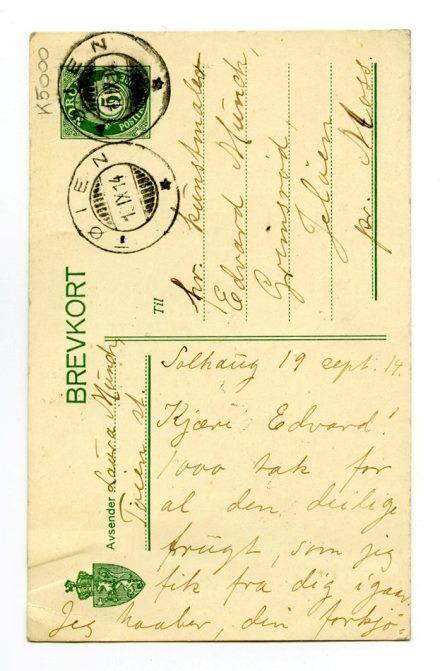 K5000
NORGE
POSTFRIM
5
ØIEN
19 IX 14
ØIEN
19 IX 14
BREVKORT
Til
hr. kunstmaler
Edvard Munch,
Grimsrød
Jeløen
pr. Moss.
Avsender Laura Munch,
Tøien st.
Solhaug 19 sept. 14.
Kjære Edvard!
1000 tak for
al den deilige
frugt, som jeg
fik fra dig igaar.
Jeg haaber, din forkjø-